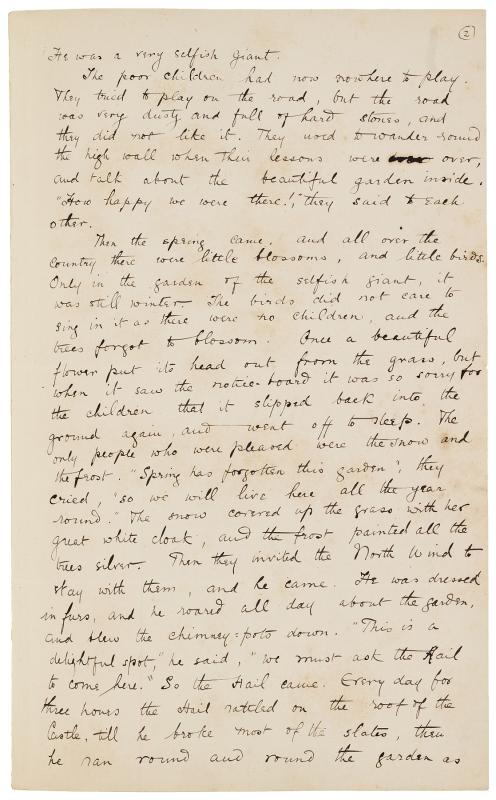 2
He was a very selfish giant.
The poor children had now nowhere to play.
They tried to play on the road, but the road
was very dusty and full of hard stones, and
they did not like it. They used to wander round
the high wall when their lessons were over,
and talk about the beautiful garden inside.
"How happy we were there!", they said to each
other.
Then the spring came, and all over the
country there were little blossoms, and little birds.
Only in the garden of the selfish giant, it
was still winter. The birds did not care to
sing in it as there were no children, and the
trees forgot to blossom. Once a beautiful
flower put its head out from the grass, but
when it saw the notice-board it was so sorry for
the children that it slipped back into the
ground again, and went off to sleep. The
only people who were pleased were the snow and
the frost. "Spring has forgotten this garden", they
cried, "so we will live here all the year
round." The snow covered up the grass with her
great white cloak, and the frost painted all the
trees silver. Then they invited the North Wind to
stay with them, and he came. He was dressed
in furs, and he roared all day about the garden,
and blew the chimney-pots down. "This is a
delightful spot," he said, "we must ask the Hail
to come here." So the Hail came. Every day for
three hours the Hail rattled on the roof of the
Castle, till he broke most of the slates, then
he ran round and round the garden as